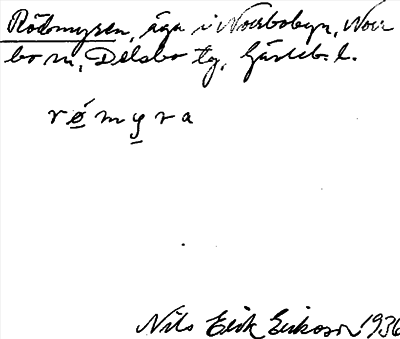 Rödmyren, äga i Norrbobyn, Norr
bo sn, Delsbo tg, Gävleb. l.
rǿmyra
Nils Erik Eriksson 1936